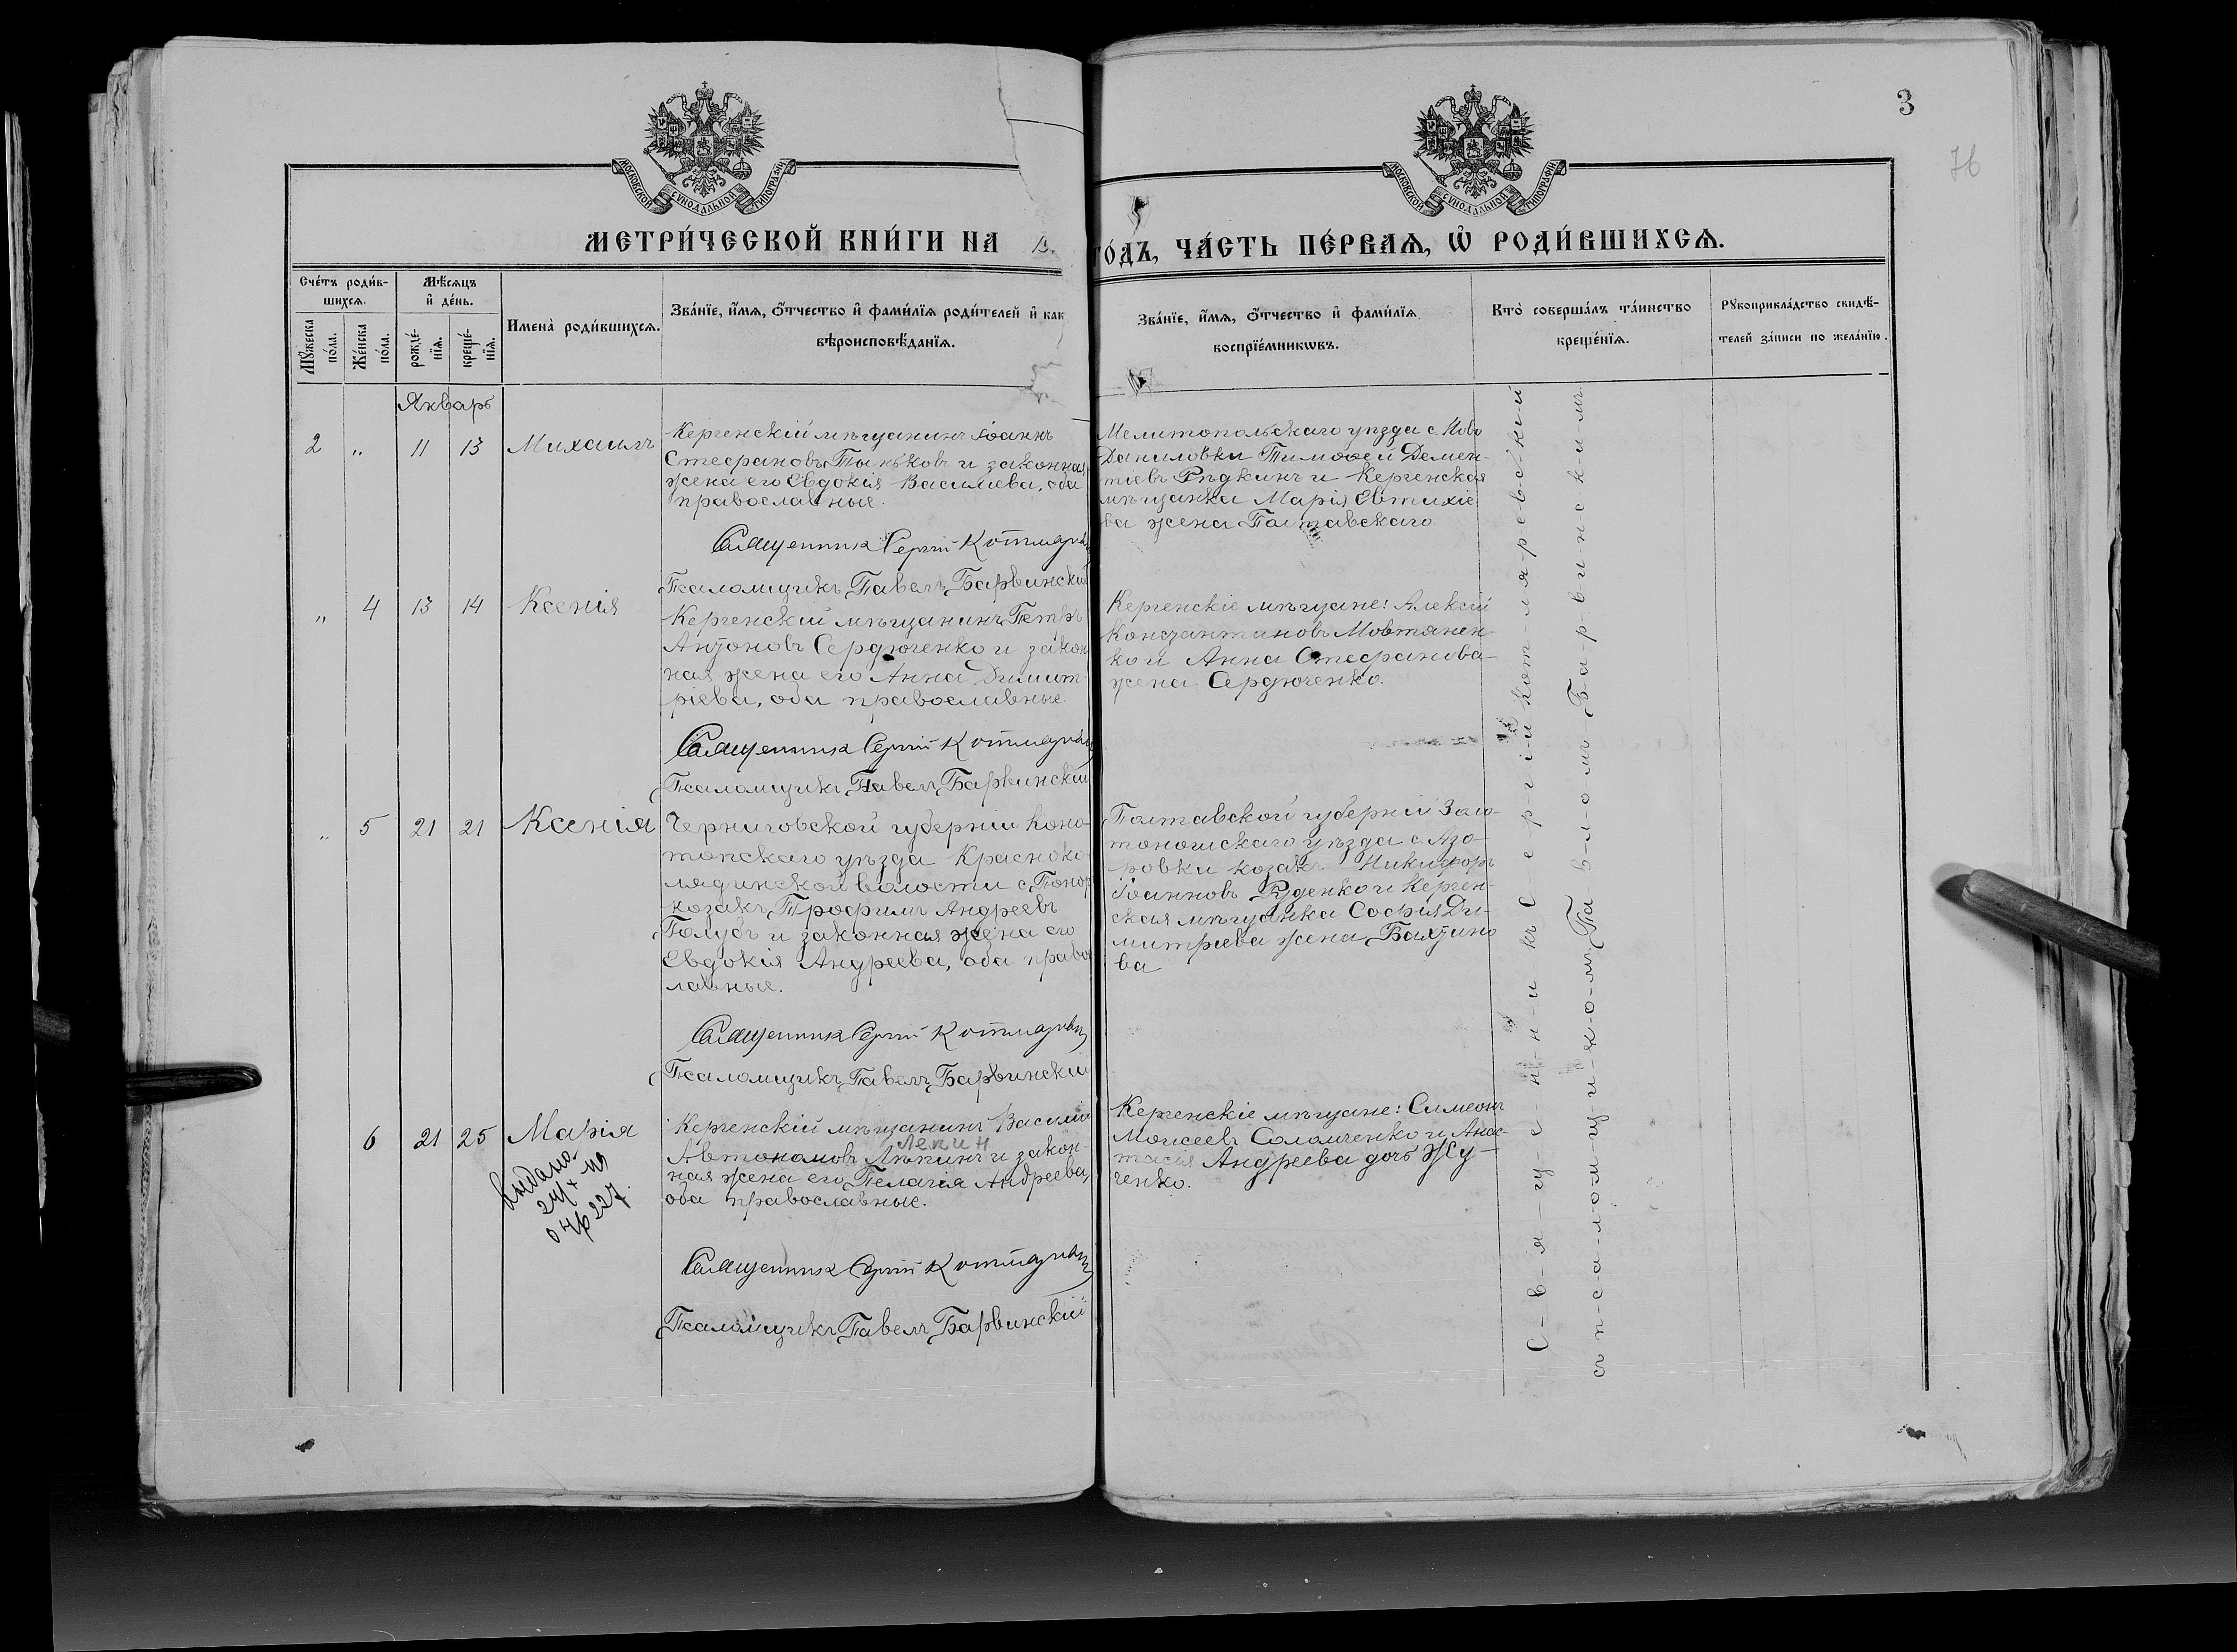 3
76
МОСКОВСКОЙ СУНОДАЛЬНОЙ ТИПОГРАФІИ
МОСКОВСКОЙ СУНОДАЛЬНОЙ ТИПОГРАФІИ
МЕТРИ́ЧЕСКОЙ КНИ́ГИ НА
ГО́ДЪ, ЧА́СТЬ ПЕ́РВАѦ, Ѡ҆ РОДИ́ВШИХСѦ.
Сче́тъ роди́в-
шихсѧ.
Мꙋ́жеска
по́ла.
Же́нска
по́ла.
Мѣ́сѧцъ
и҆ де́нь.
рожде́-
нїѧ.
креще́-
нїѧ.
И҆мена̀ роди́вшихсѧ.
Зва́нїе, и҆́мѧ, ѻ҆́тчество и҆ фами́лїѧ роди́телей и҆ как
вѣроисповѣ́данїѧ.
Зва́нїе, и҆́мѧ, ѻ҆́тчество и҆ фами́лїѧ
воспрїе́мникѡвъ.
Кто̀ соверша́лъ та́инство
креще́нїѧ.
Рꙋкоприкла́дство свидѣ́-
телей за́писи по жела́нїю.
Январь
2 „ 11 13 Михаилъ
Керченскій мѣщанинъ Іоаннъ
Стефановъ Паньковъ и законная
жена его Евдокія Василиева, оба
православные.
Священникъ Сергій Котляревскій
Псаломщикъ Павелъ Барвинскій
Мелитопольскаго уѣзда с. Ново
Даниловки Тимоѳей Демен-
тіевъ Рѣдкинъ и Керченская
мѣщанка Марія Евтихіе
ва жена Полтавскаго
„ 4 13 14 Ксенія
Керченскій мѣщанинъ Петръ
Антоновъ Сердюченко и закон
ная жена его Анна Димит-
ріева, оба православные.
Священникъ Сергій Котляревскій
Псаломщикъ Павелъ Барвинскій
Керченскіе мѣщане: Алексій
Константиновъ Мовтянен-
ко и Анна Стефанова
жена Сердюченко.
„ 5 21 21 Ксенія
Черниговской губерніи Коно-
топскаго уѣзда Красноко-
лядинской волости с. Понор
козакъ Трофимъ Андреевъ
Голубъ и законная жена его
Евдокія Андреева, оба правос
лавные.
Священникъ Сергій Котляревскій
Псаломщикъ Павелъ Барвинскій
Полтавской губерніи Золо-
тоношскаго уѣзда с.
козакъ Никифоръ
Іоанновъ Руденко и Керчен-
ская мѣщанка Софія Ди-
митріева жена Бахтино
ва
6 21 25 Марія
выдано
227
Керченскій мѣщанинъ Василій
Лепин
Автономовъ Лѣпинъ и закон-
ная жена его Пелагія Андреева,
оба православные.
Священникъ Сергій Котляревскій
Псаломщикъ Павелъ Барвинскій
Керченскіе мѣщане: Симеонъ
Моисеевъ Соломченко и Анас-
тасія Андреева дочь Жу-
ченко.
С-в-я-щ-е-н-н-и-къ С-е-р-г-і-й Кот-ля-рев-с-к-і-й
съ п-с-а-л-о-м-щ-и-к-о-мъ Па-в-л-о-мъ Б-а-р-в-и-н-с-к-и-мъ